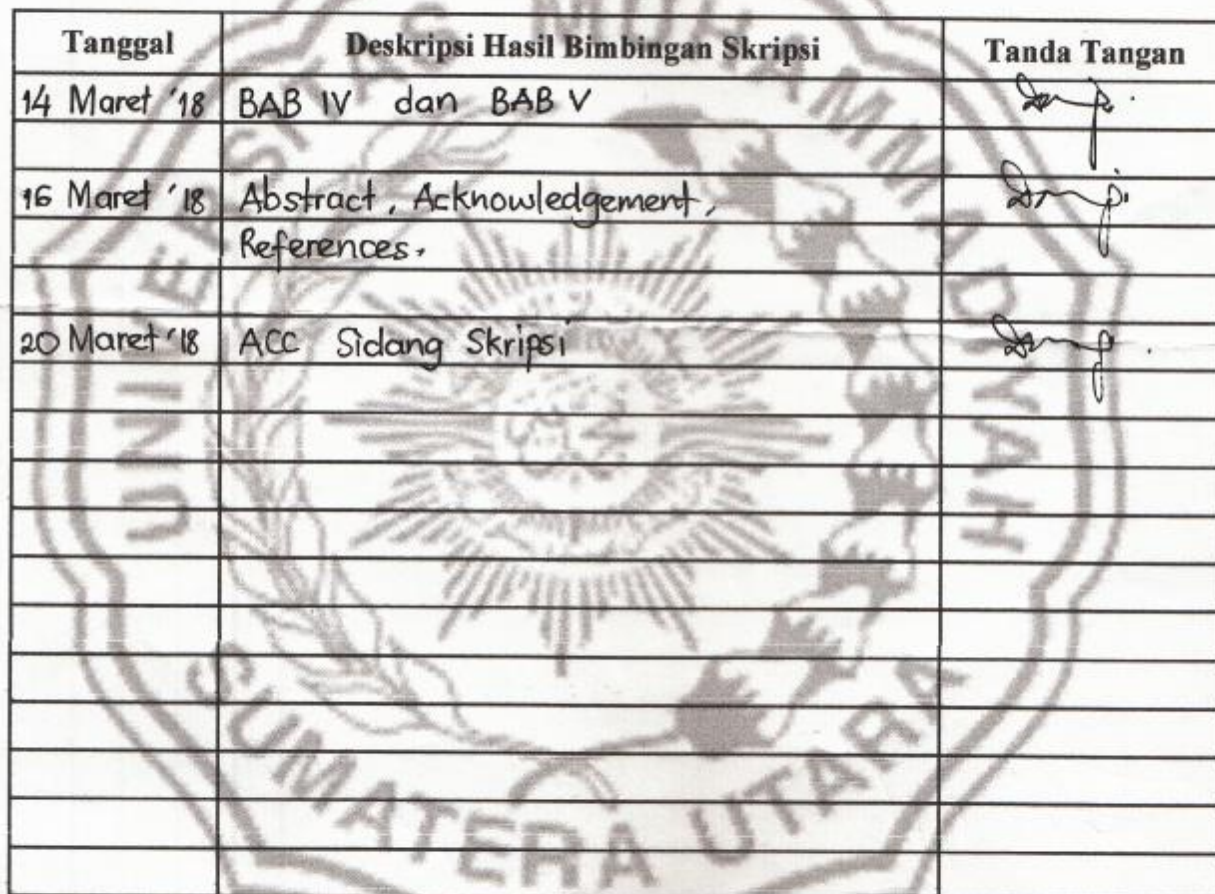 Tanggal Deskripsi Hasil Bimbingan Skripsi Tanda Tangan
14 Maret '18 BAB IV dan BAB V
16 Maret '18 Abstract, Acknowledgement,
References.
20 Maret '18 ACC Sidang Skripsi
UNIVERSITAS MUHAMMADIYAH
SUMATERA UTARA